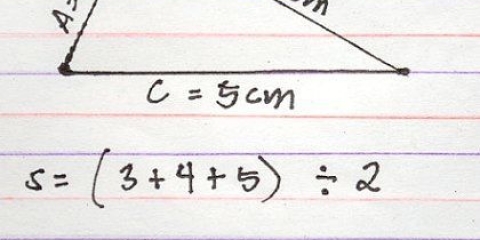 A=
cm
C = 5cm
s = (3+4+5) ÷ 2